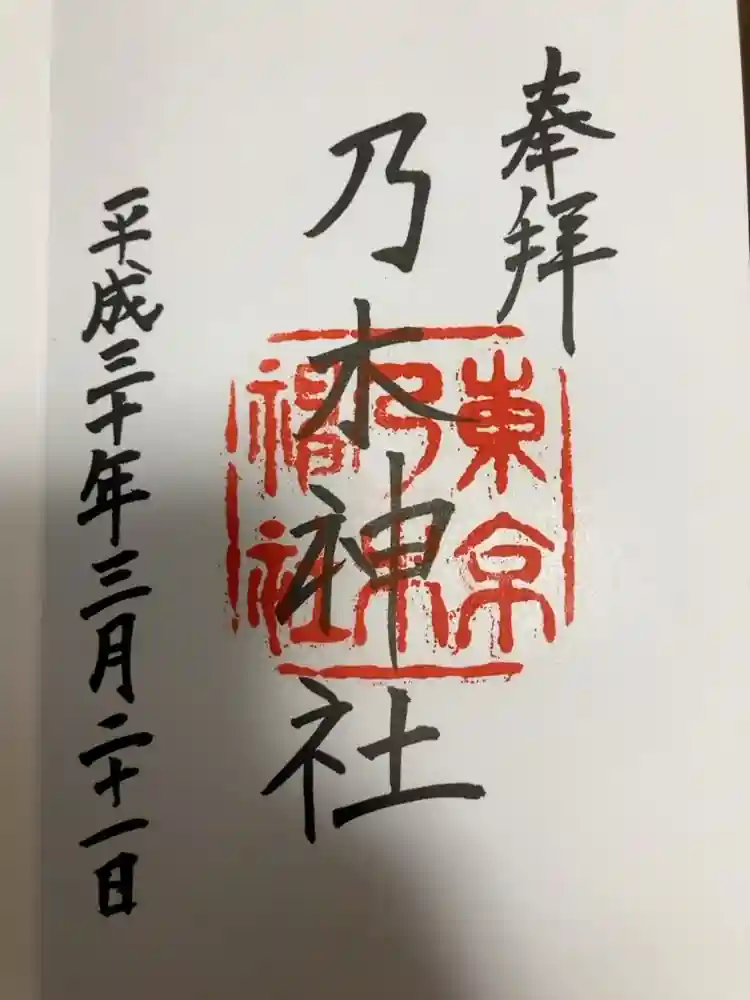 奉拝
乃木神社
東京
乃木
神社
平成三十年三月二十一日